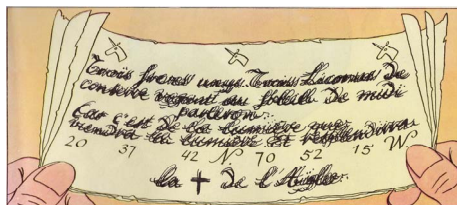 Trois freres unys Trois Licornes De
conserve vogant au soleil De midi
parleron:
Car c'est De la lumière que
viendra la lumière Et resplendira
20 37 42 N 70 52 15 W
la + De l'Aigle: